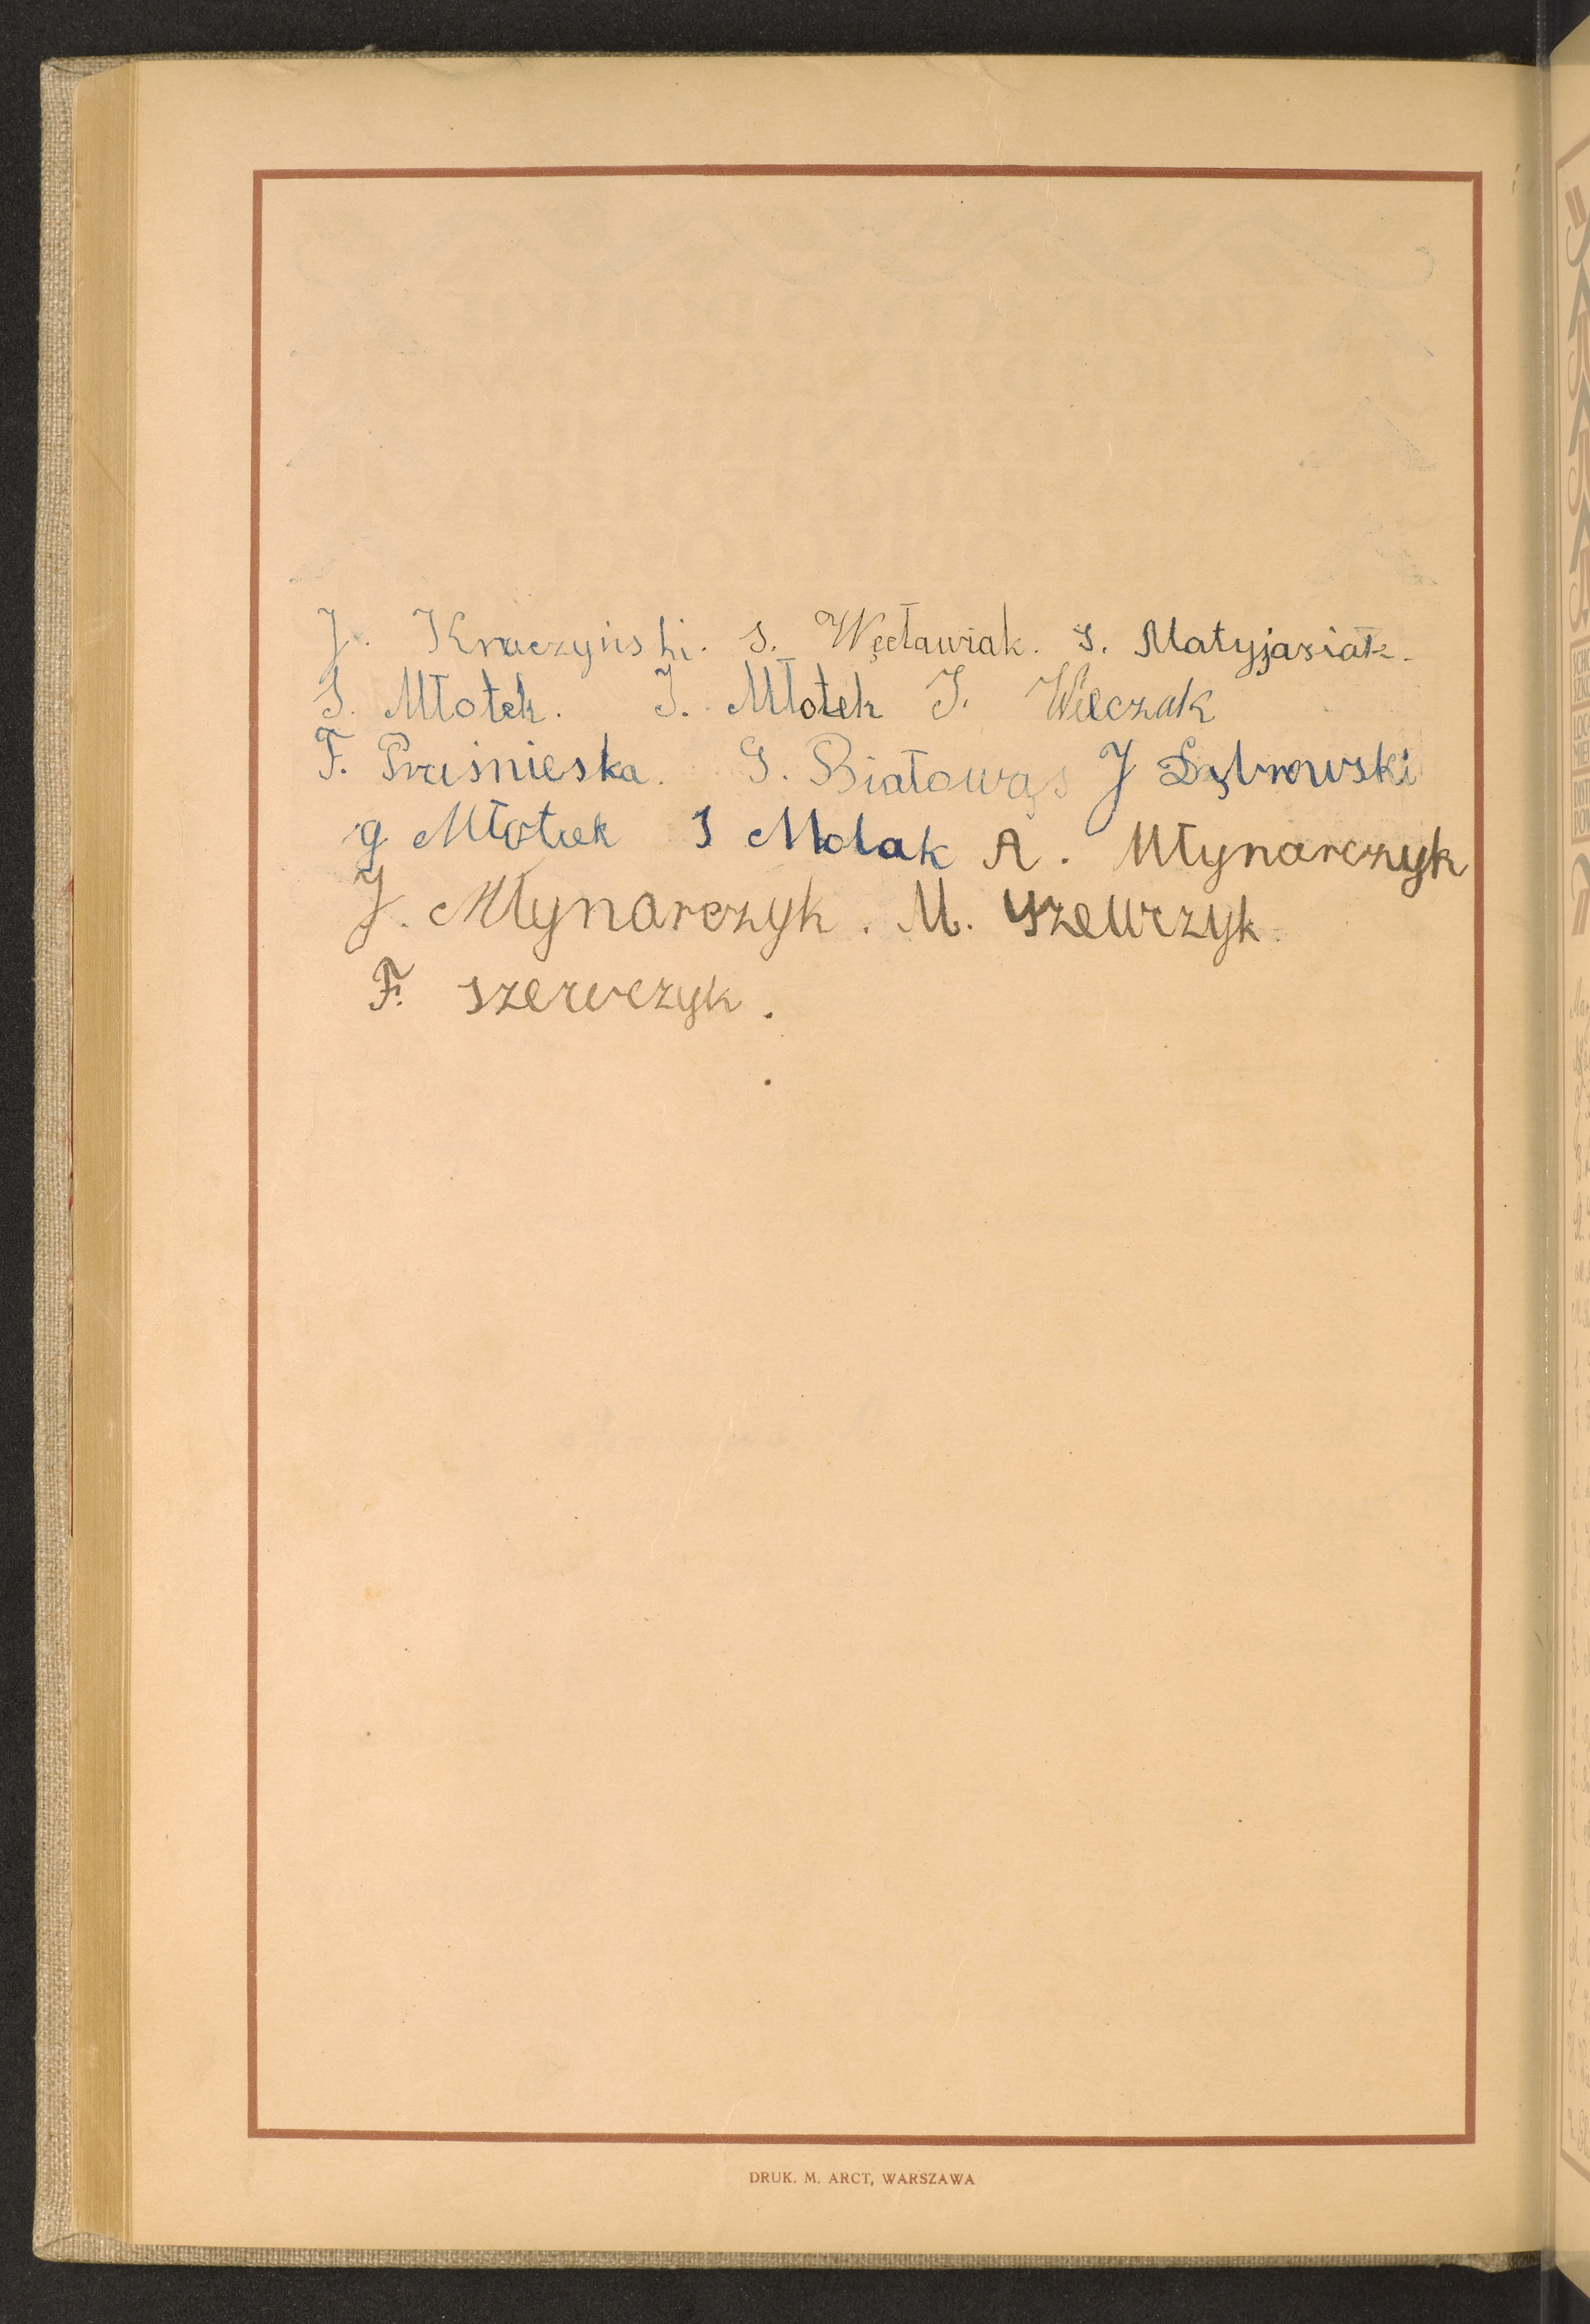 J. Kraczyński. S. Węcławiak. S. Matyjasiak.
S. Młotek. J. Młotek J. Wilczak
F. Praśnieska. G. Białowąs J Dąbrowski
g Młotek S Molak A. Młynarczyk
J. Młynarczyk. M. Szewczyk.
F. szewczyk.
DRUK. M. ARCT, WARSZAWA